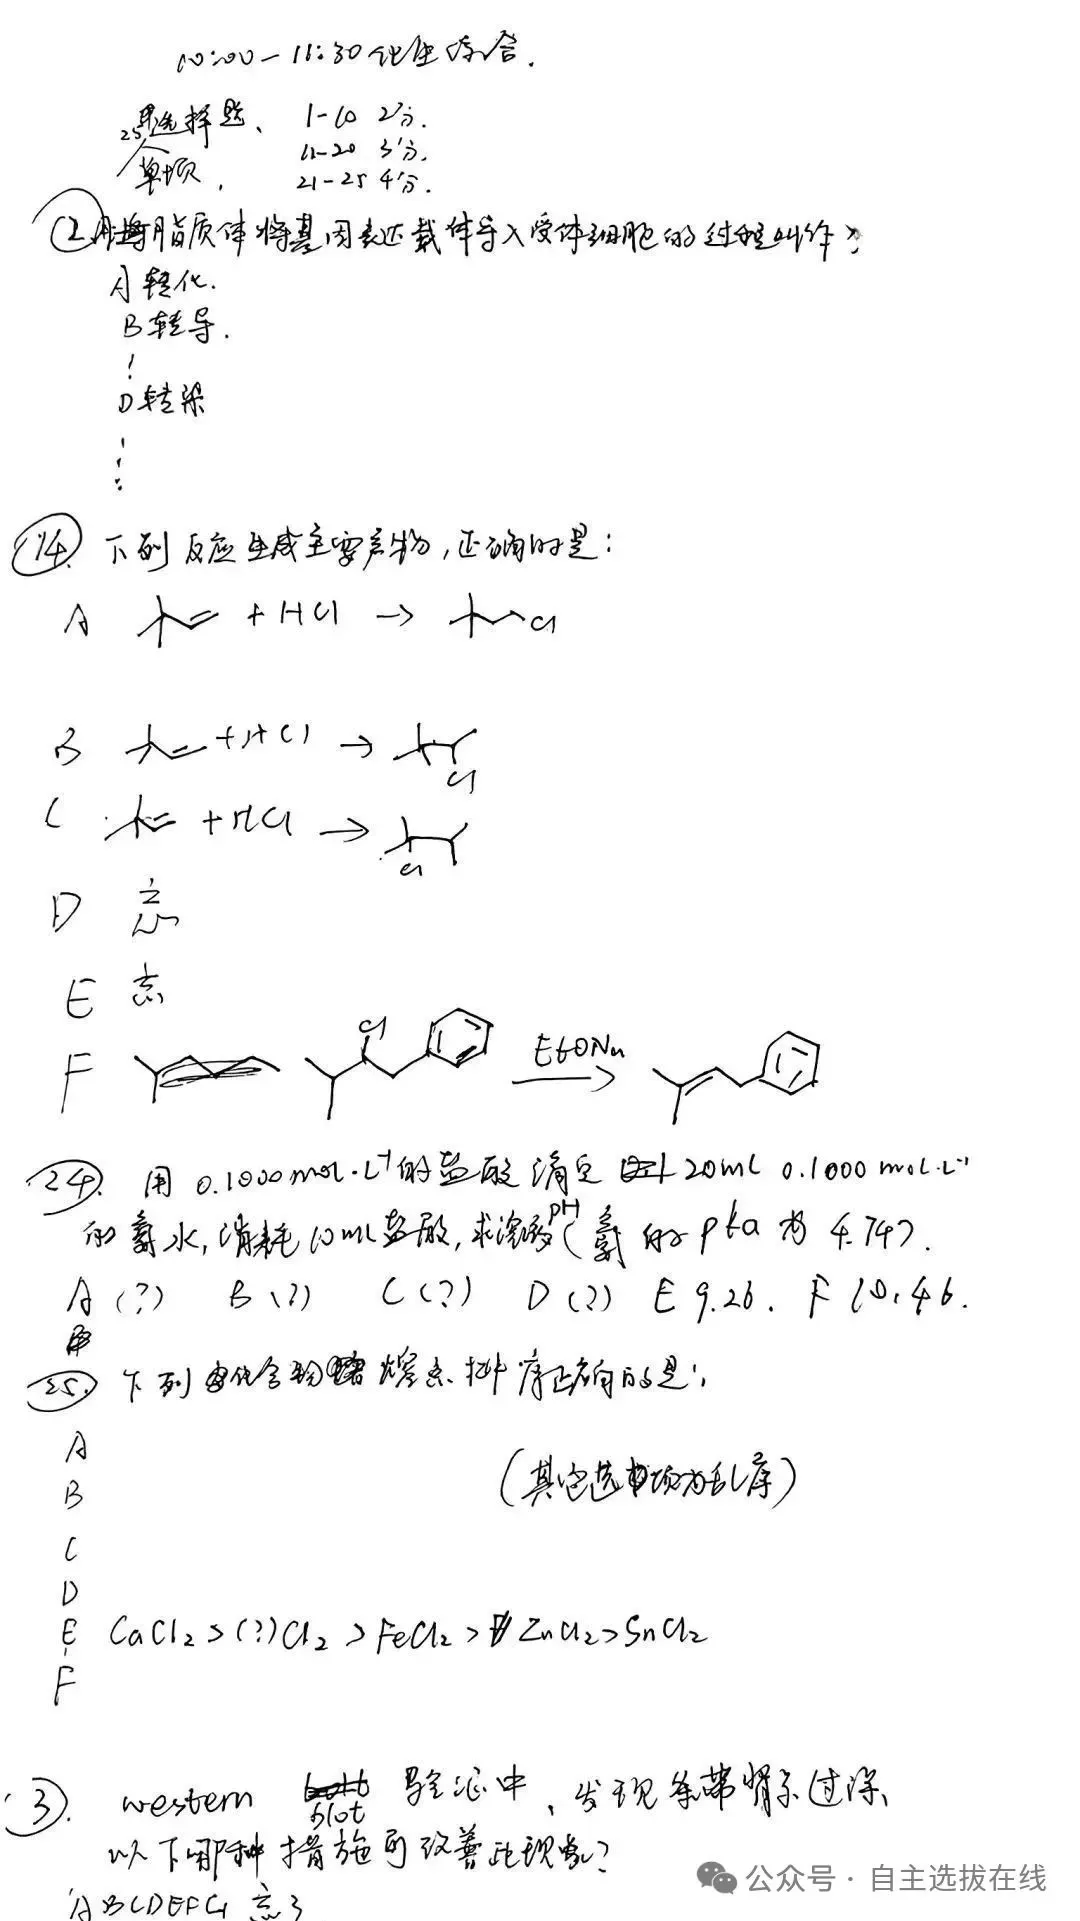 10:00-11:30 化生综合.
25个
单选择题、 1-10 2分.
单项, 11-20 3分.
21-25 4分.
② 用脂质体将基因表达载体导入受体细胞的过程叫作?
A 转化.
B 转导.
D 转染
14. 下列反应生成主要产物,正确的是:
A + HCl → Cl
B + HCl → Cl
C + HCl → Cl
D 忘
E 忘
F Cl EtONa
24. 用 0.1000 mol·L⁻¹的盐酸滴定 20ml 0.1000 mol·L⁻¹
的氨水,消耗10ml盐酸,求溶液pH(氨的pka为4.74).
A (?) B (?) C (?) D (?) E 9.26. F 10.46.
25. 下列化合物熔点排序正确的是:
A
(其它选项为乱序)
B
C
D
E CaCl₂>(?)Cl₂>FeCl₂>ZnCl₂>SnCl₂
F
3. western blot 验证中、发现条带背景过深、
以下哪种措施可改善此现象?
ABCDEFG 忘了
公众号·自主选拔在线